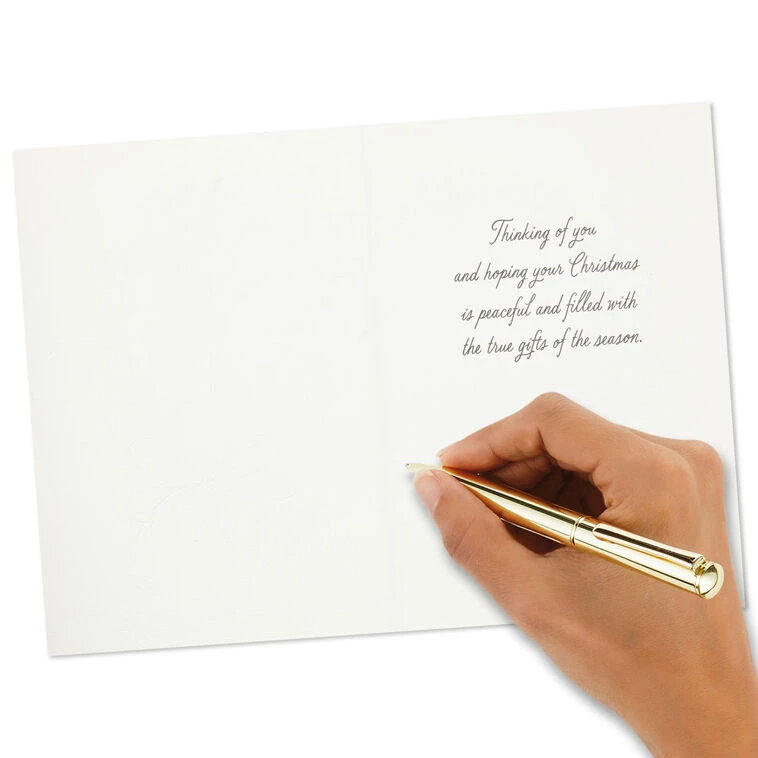 Thinking of you
and hoping your Christmas
is peaceful and filled with
the true gifts of the season.